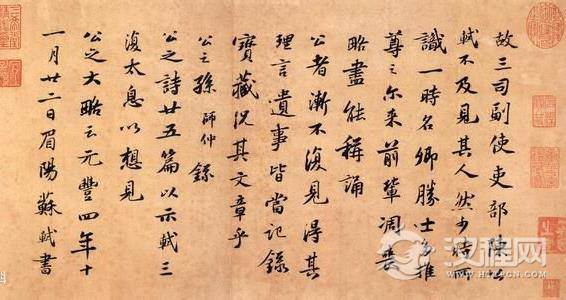 故三司副使吏部陳公
軾不及見其人然少時所
識一時名卿勝士多推
尊之尔来前輩凋喪
略盡能稱誦
公者漸不復見得其
理言遺事皆當記錄
寶藏況其文章乎
公之孫師仲錄
公之詩廿五篇以示軾三
復太息以想見
公之大略云元豐四年十
一月廿二日眉陽蘇軾書
汉程网